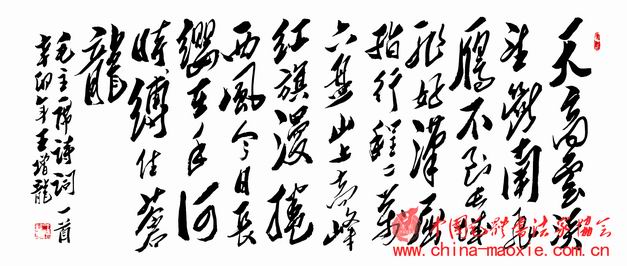 天高雲淡
望斷南飛
雁不到長城
非好漢屈
指行程二萬
六盘山上高峰
红旗漫捲
西風今日長
纓在手何
時縛住蒼
龍
毛主席詩詞一首
辛卯年王增龍
中国毛體書法家協會
www.china-maoxie.com.cn